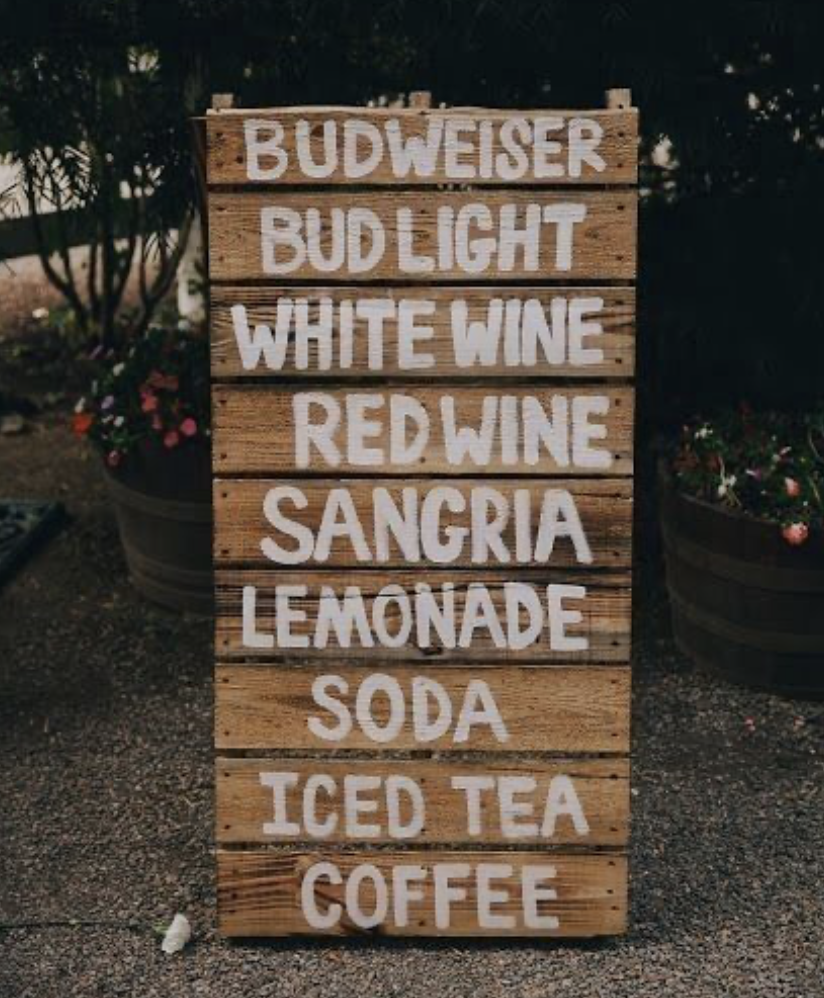 BUDWEISER
BUD LIGHT
WHITE WINE
RED WINE
SANGRIA
LEMONADE
SODA
ICED TEA
COFFEE